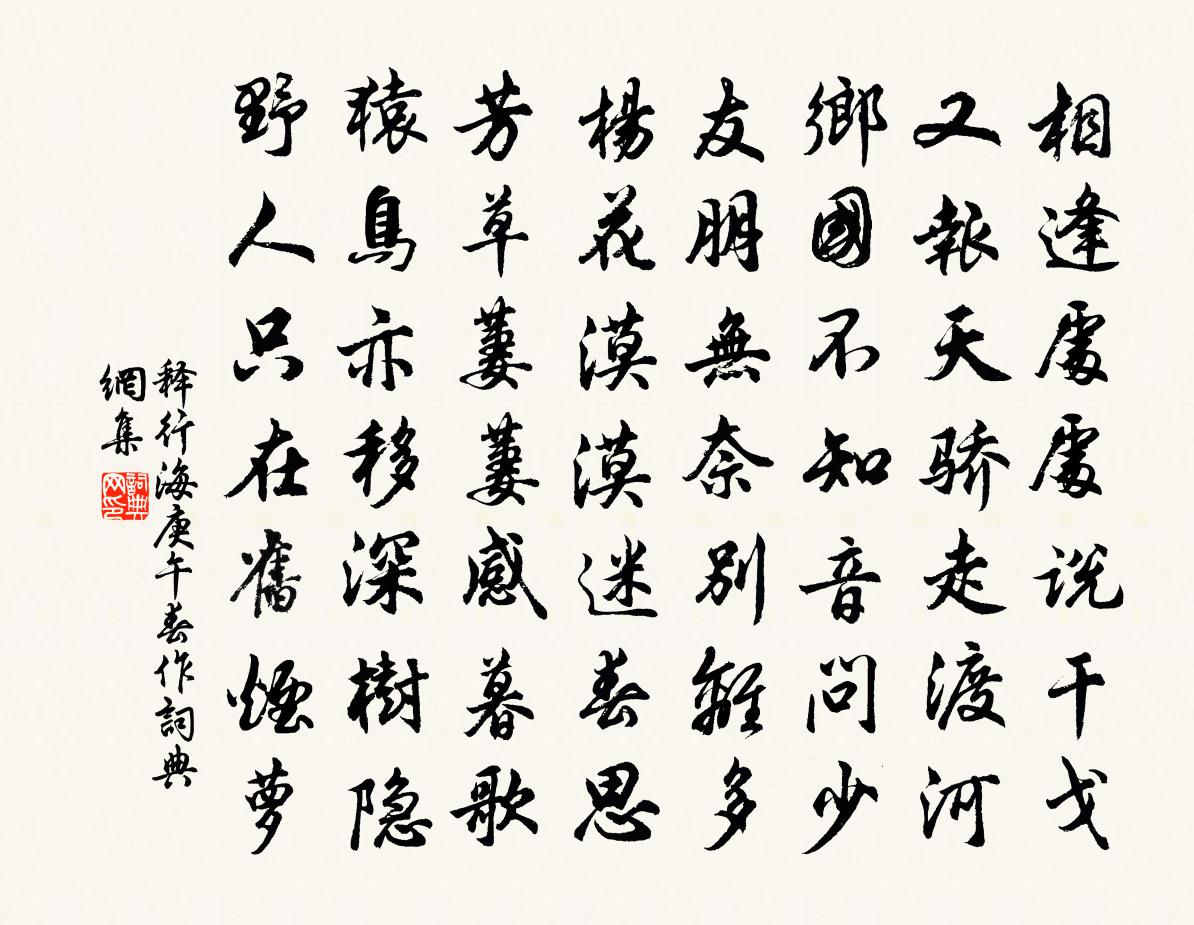 相逢處處説干戈
又報天骄走渡河
鄉國不知音問少
友朋無奈別離多
楊花漠漠迷春思
芳草萋萋感暮歌
猿鳥亦移深樹隐
野人只在舊煙萝
释行海庚午春作詞典
網集
詞典
网印